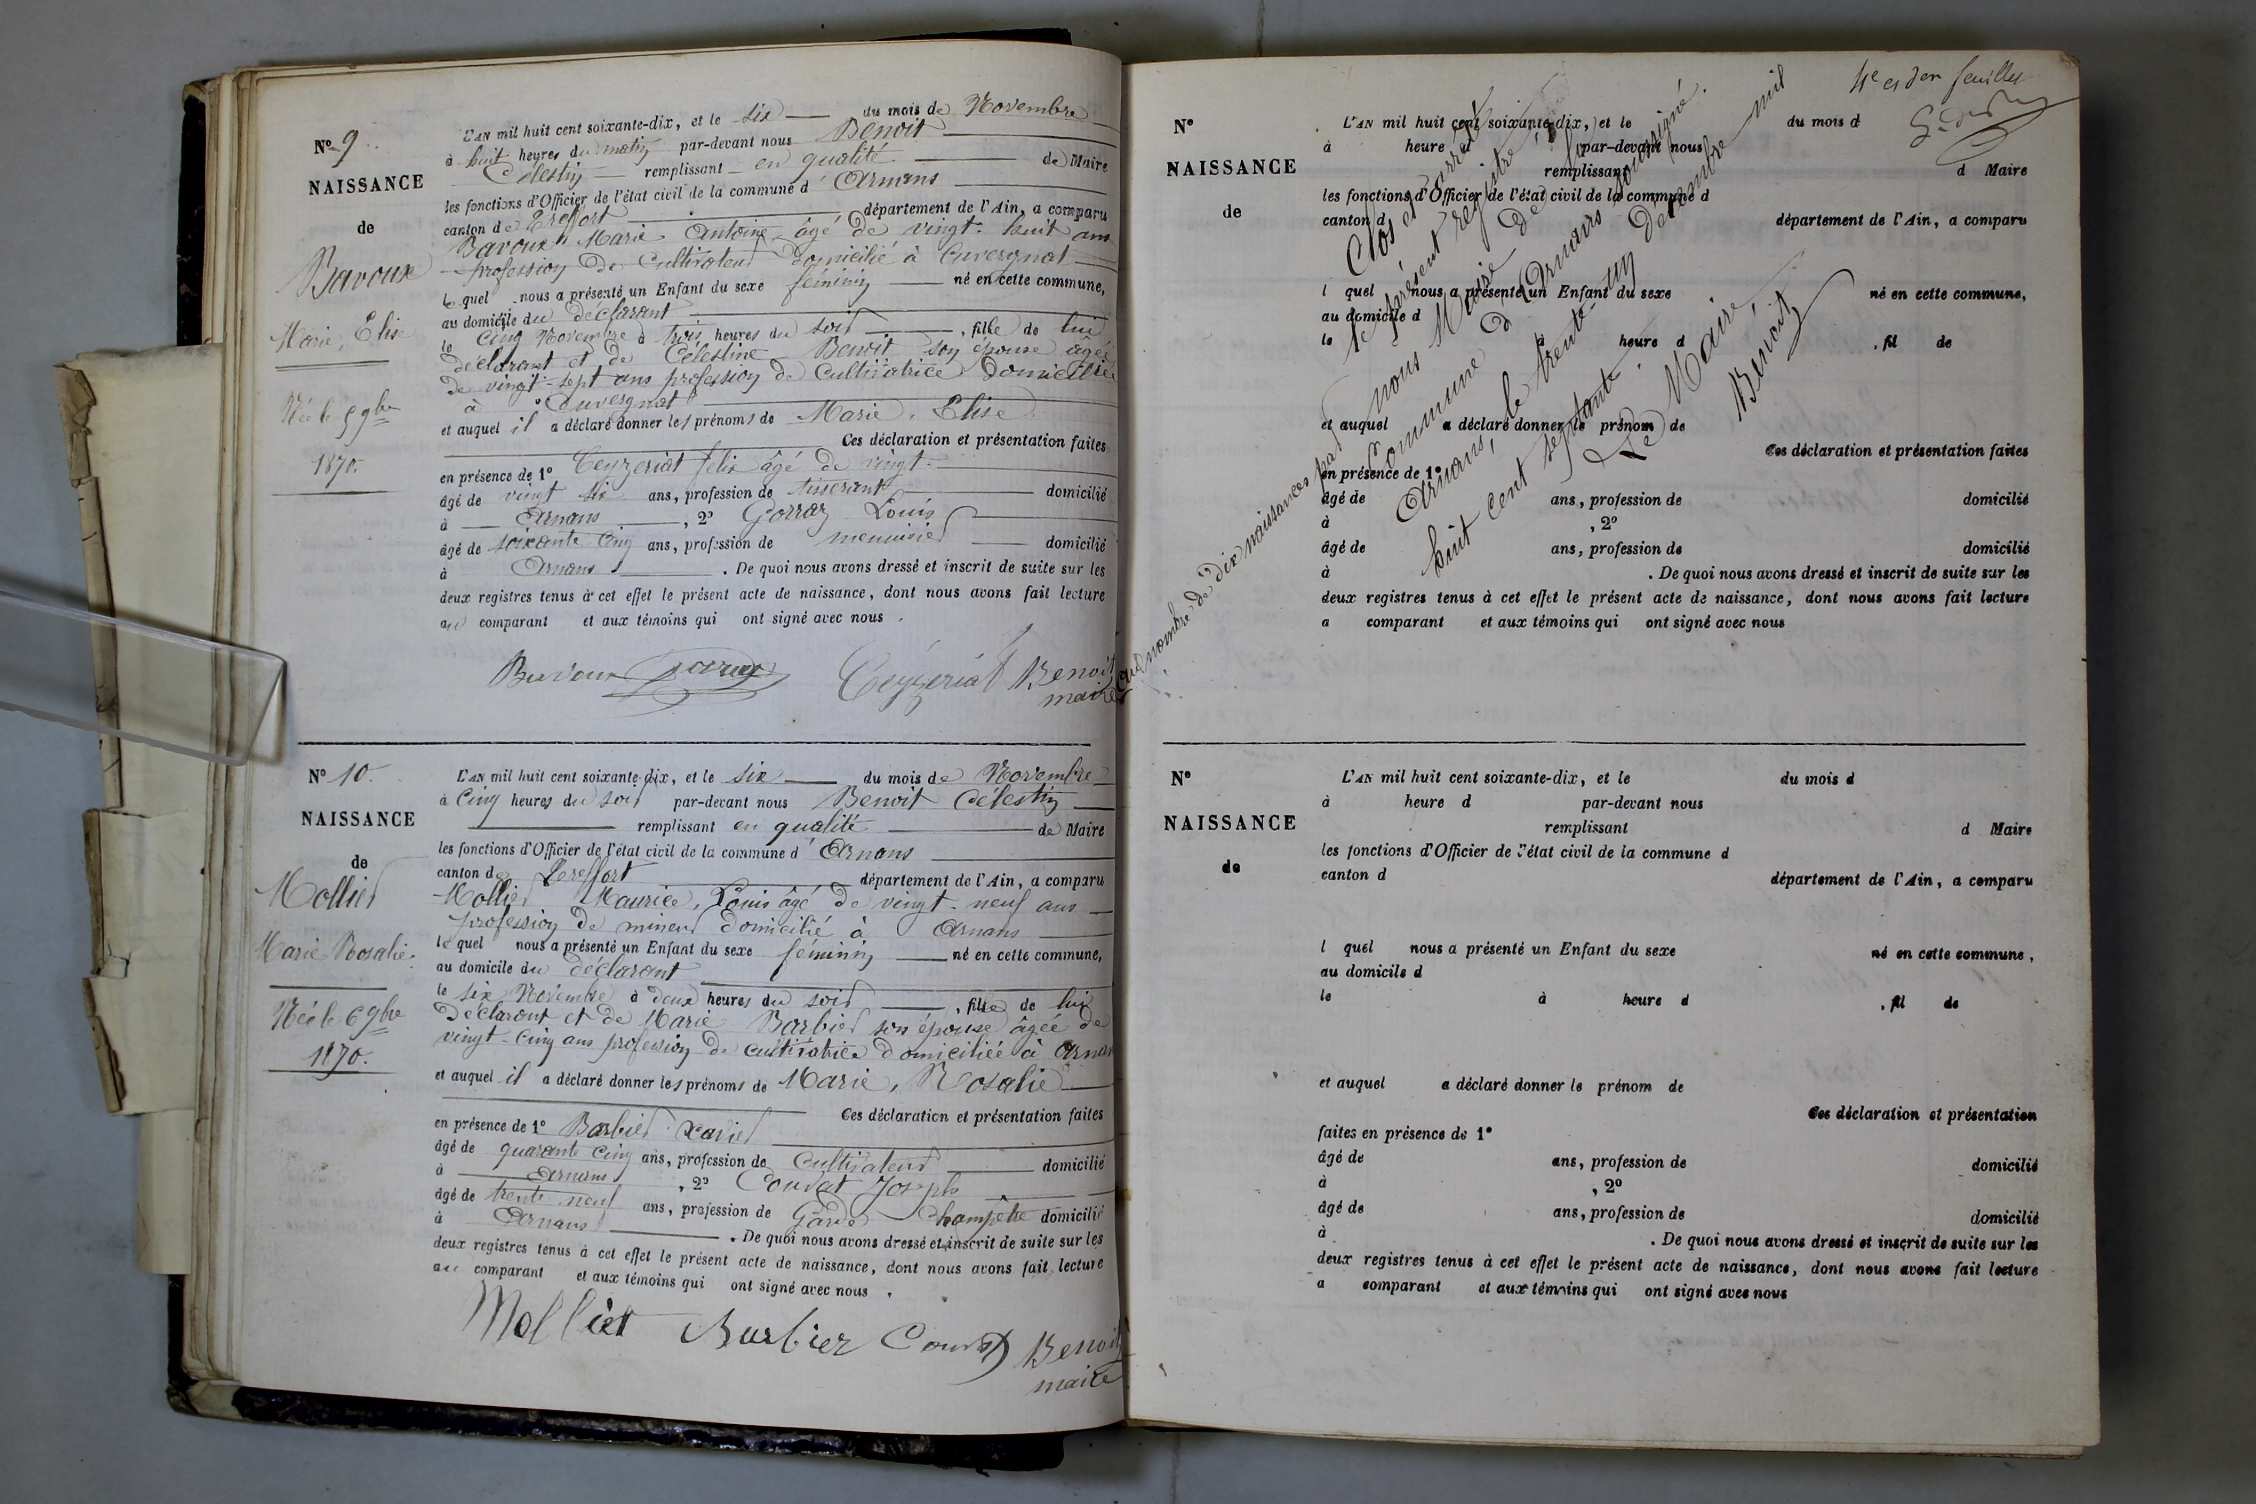 Nº 9
NAISSANCE
de
Bavoux
Marie, Elise
Née le 5 9bre
1870.
L'AN mil huit cent soixante-dix, et le six du mois de Novembre
à huit heures du matin par-devant nous Benoit
Célestin remplissant en qualité de Maire
les fonctions d'Officier de l'état civil de la commune d'Arnans
canton de Treffort département de l'Ain, a comparu
Bavoux Marie Antoine âgé de vingt-huit ans
profession de Cultivateur domicilié à Cuvergnat
lequel nous a présenté un Enfant du sexe féminin né en cette commune,
au domicile du déclarant
le cinq Novembre à trois heures du soir, fille de lui
déclarant et de Célestine Benoit son épouse âgée
de vingt-sept ans profession de Cultivatrice domiciliée
à Cuvergnat
et auquel il a déclaré donner les prénoms de Marie, Elise
Ces déclaration et présentation faites
en présence de 1º Ceyzeriat felix âgé de vingt-
âgé de vingt six ans, profession de tisserant domicilié
à Arnans, 2º Gorraz Louis
âgé de soixante cinq ans, profession de menuisier domicilié
à Arnans. De quoi nous avons dressé et inscrit de suite sur les
deux registres tenus à cet effet le présent acte de naissance, dont nous avons fait lecture
au comparant et aux témoins qui ont signé avec nous.
Bavoux Ceyzeriat Benoit
maire
Nº 10.
NAISSANCE
de
Mollier
Marie Rosalie.
Née le 6 9bre
1870.
L'AN mil huit cent soixante-dix, et le six du mois de Novembre
à Cinq heures du soir par-devant nous Benoit Célestin
remplissant en qualité de Maire
les fonctions d'Officier de l'état civil de la commune d'Arnans
canton de Treffort département de l'Ain, a comparu
Mollier Maurice, Louis âgé de vingt-neuf ans
profession de mineur domicilié à Arnans
lequel nous a présenté un Enfant du sexe féminin né en cette commune,
au domicile du déclarant
le six Novembre à deux heures du soir, fille de lui
déclarant et de Marie Barbier son épouse âgée de
vingt-cinq ans profession de cultivatrice domiciliée à Arnans
et auquel il a déclaré donner les prénoms de Marie, Rosalie
Ces déclaration et présentation faites
en présence de 1º Barbier Xavier
âgé de quarante cinq ans, profession de Cultivateur domicilié
à Arnans, 2º Coudat Joseph
âgé de trente-neuf ans, profession de Garde Champêtre domicilié
à Arnans. De quoi nous avons dressé et inscrit de suite sur les
deux registres tenus à cet effet le présent acte de naissance, dont nous avons fait lecture
au comparant et aux témoins qui ont signé avec nous.
Molliet Barbier Benoit
maire
4e et der feuillet
Nº
NAISSANCE
de
L'AN mil huit cent soixante-dix, et le du mois d
à heure d par-devant nous
remplissant d Maire
les fonctions d'Officier de l'état civil de la commune d
canton d département de l'Ain, a comparu
l quel nous a présenté un Enfant du sexe né en cette commune,
au domicile d
le à heure d , fil de
et auquel a déclaré donner le prénom de
Ces déclaration et présentation faites
en présence de 1º
âgé de ans, profession de domicilié
à , 2º
âgé de ans, profession de domicilié
à . De quoi nous avons dressé et inscrit de suite sur les
deux registres tenus à cet effet le présent acte de naissance, dont nous avons fait lecture
a comparant et aux témoins qui ont signé avec nous
Clos et arrêté
le présent registre
au nombre de dix naissances par nous Maire de la
Commune d'Arnans soussigné.
Arnans, le trente-un décembre mil
huit cent septante.
Le Maire
Benoit
Nº
NAISSANCE
de
L'AN mil huit cent soixante-dix, et le du mois d
à heure d par-devant nous
remplissant d Maire
les fonctions d'Officier de l'état civil de la commune d
canton d département de l'Ain, a comparu
l quel nous a présenté un Enfant du sexe né en cette commune,
au domicile d
le à heure d , fil de
et auquel a déclaré donner le prénom de
Ces déclaration et présentation
faites en présence de 1º
âgé de ans, profession de domicilié
à , 2º
âgé de ans, profession de domicilié
à . De quoi nous avons dressé et inscrit de suite sur les
deux registres tenus à cet effet le présent acte de naissance, dont nous avons fait lecture
a comparant et aux témoins qui ont signé avec nous